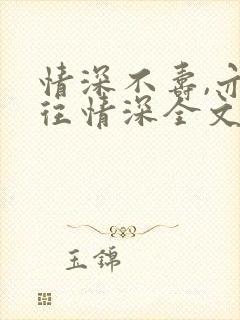 情深不寿,亦
往情深全文
玉锦